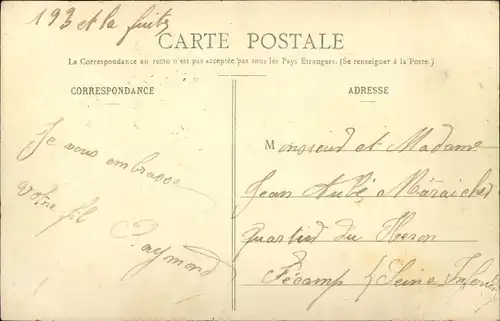 193 et la fuite
CARTE POSTALE
La Correspondance au recto n'est pas acceptée par tous les Pays Étrangers. (Se renseigner à la Poste.)
CORRESPONDANCE
ADRESSE
Je vous embrasse
votre fil
Raymond
Monsieur et Madame
Jean Aubé Maraicher
quartier du Heron
Fécamp / Seine Inferieu